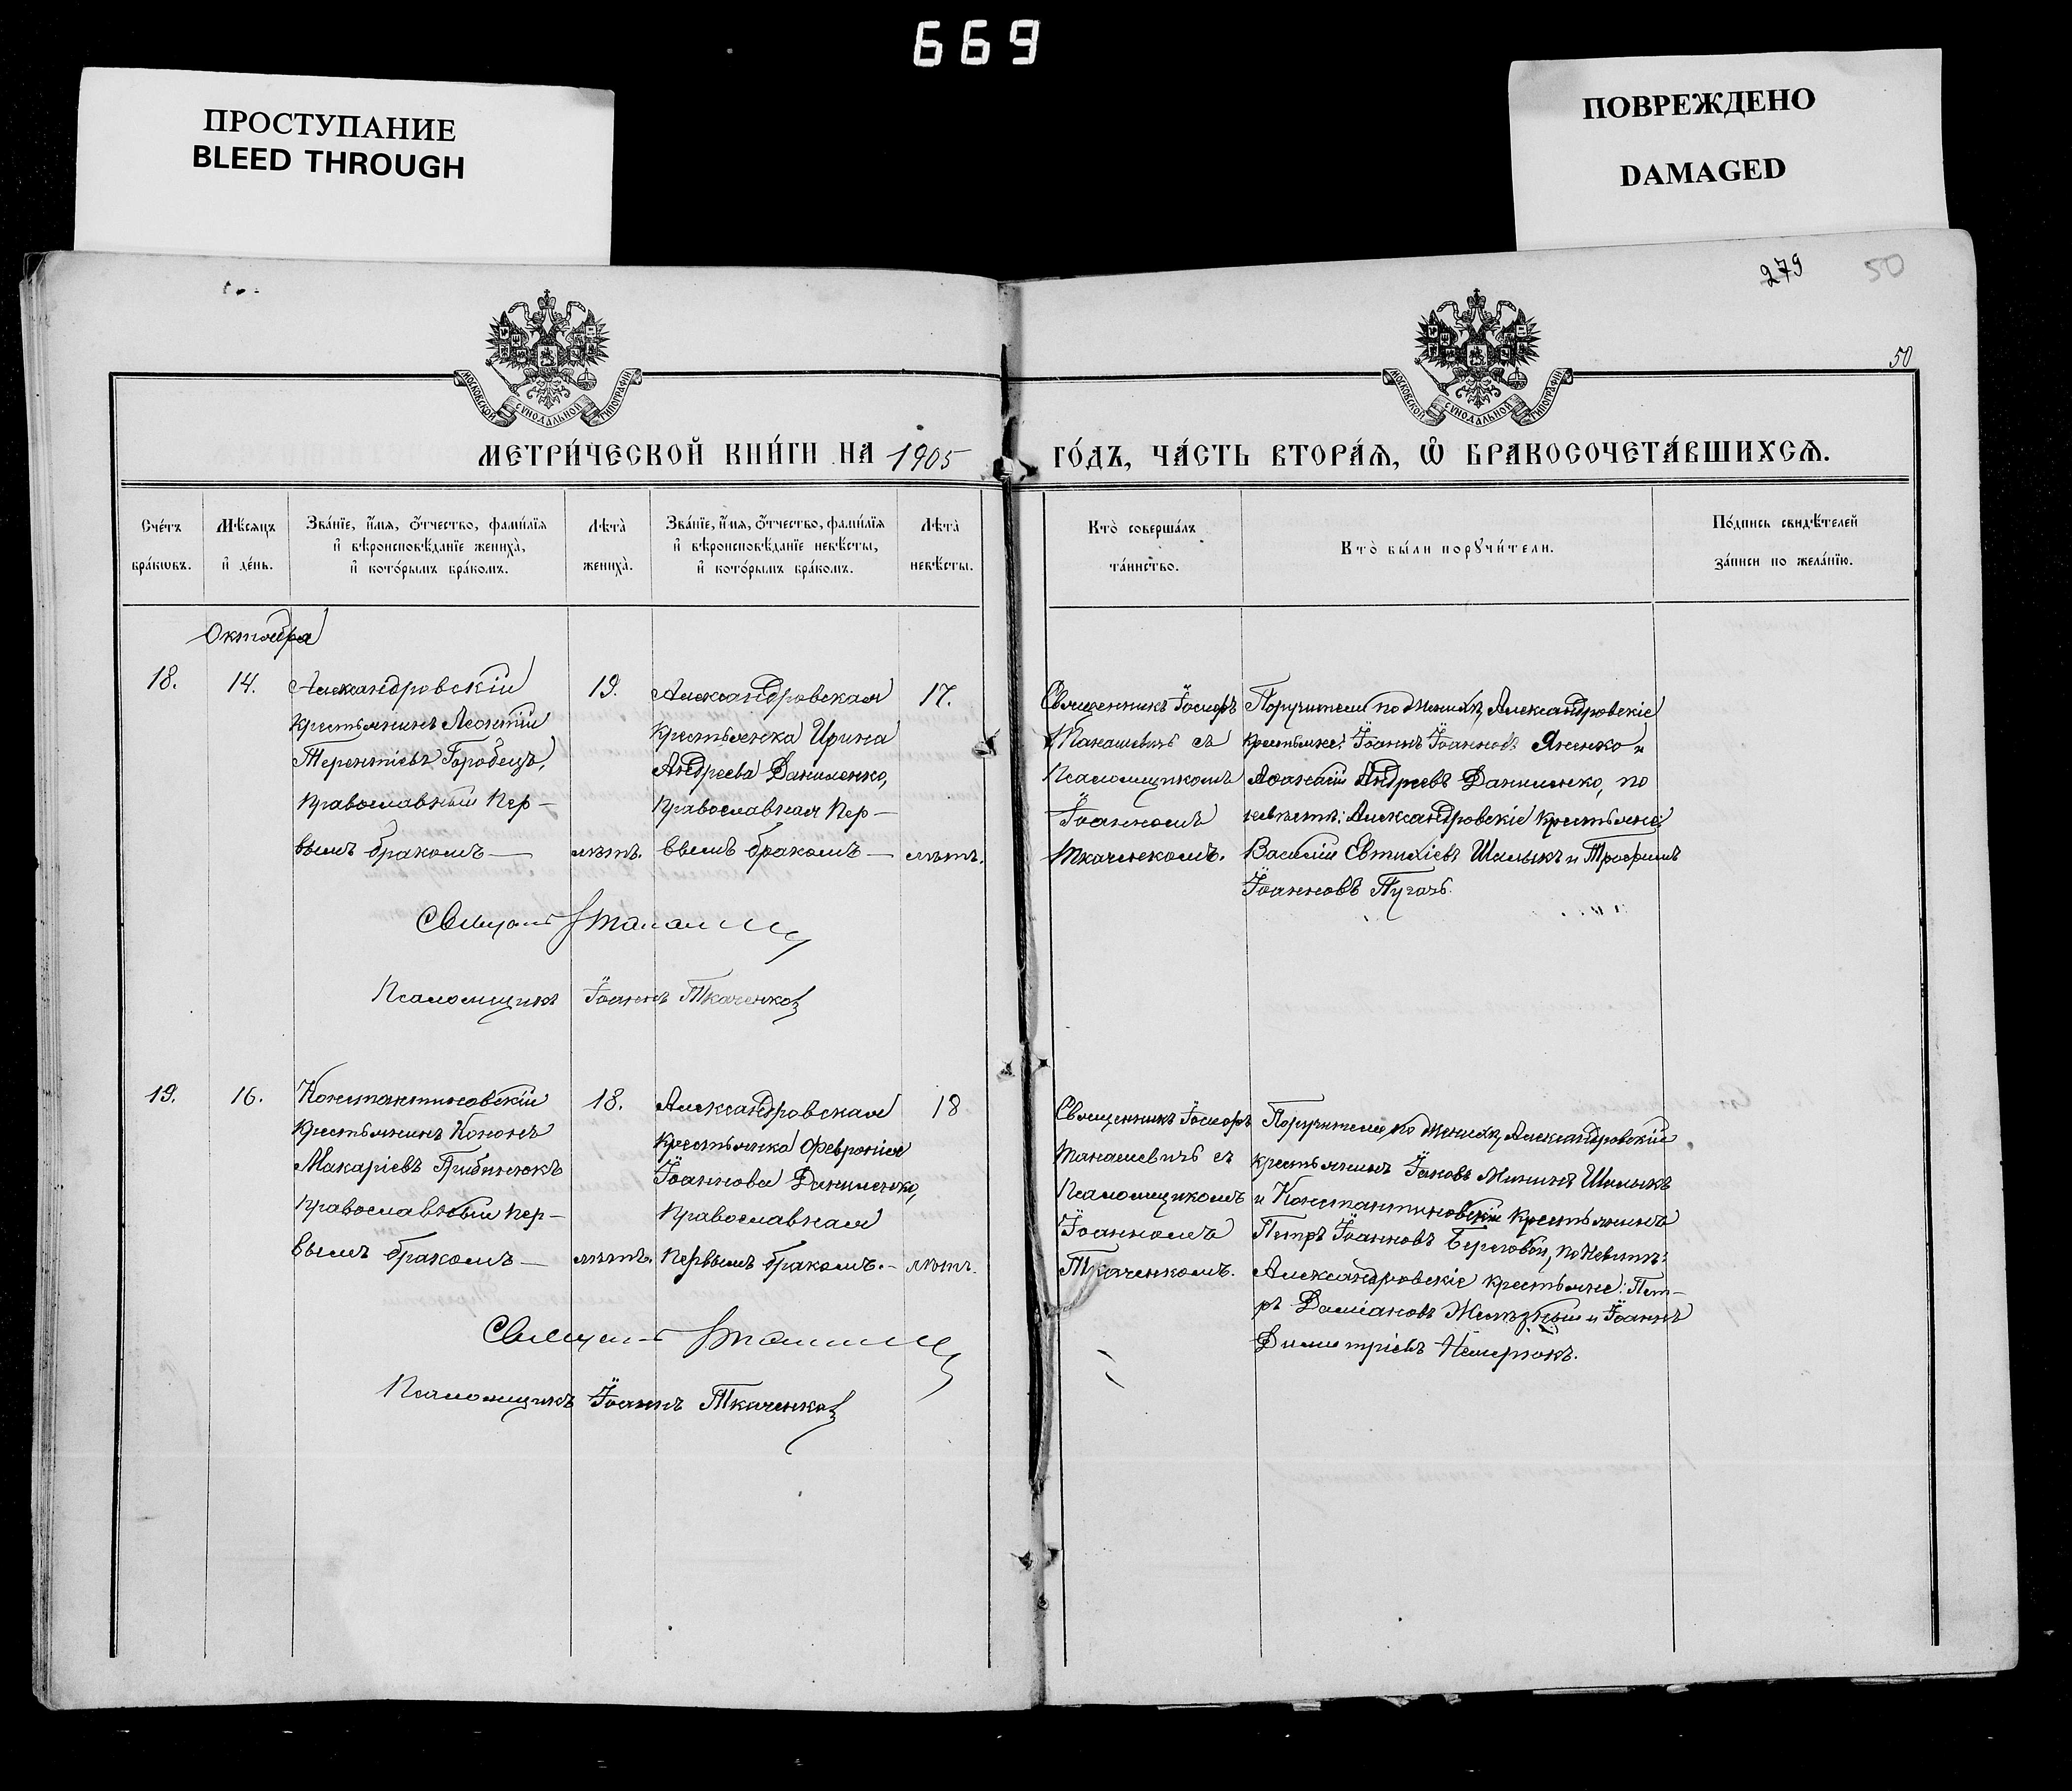 669
ПРОСТУПАНИЕ
BLEED THROUGH
ПОВРЕЖДЕНО
DAMAGED
279 50
50
МОСКОВСКОЙ СѴНОДАЛЬНОЙ ТИПОГРАФІИ
МОСКОВСКОЙ СѴНОДАЛЬНОЙ ТИПОГРАФІИ
МЕТРИ́ЧЕСКОЙ КНИ́ГИ НА 1905
ГО́ДЪ, ЧА́СТЬ ВТОРА́Ѧ, Ѽ БРАКОСОЧЕТА́ВШИХСѦ.
Сче́тъ
бра́кѡвъ.
Мѣ́сяцъ
и҆ де́нь.
Зва́нїе, и҆́мя, ѻ҆́тчество, фами́лїя
и҆ вѣроисповѣ́данїе жениха̀,
и҆ кото́рымъ бра́комъ.
Лѣта̀
жениха̀.
Зва́нїе, и҆́мя, ѻ҆́тчество, фами́лїя
и҆ вѣроисповѣ́данїе невѣ́сты,
и҆ кото́рымъ бра́комъ.
Лѣта̀
невѣ́сты.
Кто̀ соверша́лъ
та́инство.
Кто̀ бы́ли порꙋчи́тели.
По́дпись свидѣ́телей
за́писи по жела́нїю.
Октября
18.
14.
Александровскій
крестьянинъ Леонтій
Терентіевъ Горобецъ,
православный пер—
вымъ бракомъ—
19.
лѣтъ.
Александровская
крестьянка Ирина
Андреева Даниленко,
православная пер—
вымъ бракомъ—
17.
лѣтъ.
Священникъ Іосифъ
Танашевичъ съ
псаломщикомъ
Іоанномъ
Ткаченкомъ.
Поручители по жениху, Александровскіе
крестьяне: Іоаннъ Іоанновъ Яненко и
Аѳанасій Андреевъ Даниленко, по
невѣстѣ: Александровскіе крестьяне:
Василій Евтихіевъ Шалыкъ и Трофимъ
Іоанновъ Пугачъ.
Псаломщикъ Іоаннъ Ткаченко
19.
16.
Константиновскій
крестьянинъ Кононъ
Макаріевъ Грибинюкъ
православный пер—
вымъ бракомъ—
18.
лѣтъ.
Александровская
крестьянка Февронія
Іоаннова Даниленко,
православная
первымъ бракомъ.—
18
лѣтъ.
Священникъ Іосифъ
Танашевичъ съ
псаломщикомъ
Іоанномъ
Ткаченкомъ.
Поручители, по жениху, Александровскій
крестьянинъ Іаковъ Мининъ Шалыкъ
и Константиновскій крестьянинъ
Петръ Іоанновъ Береговой, по невѣстѣ:
Александровскіе крестьяне: Пет—
ръ Даміановъ Желѣзный и Іоаннъ
Димитріевъ Немерюкъ.
Псаломщикъ Іоаннъ Ткаченко